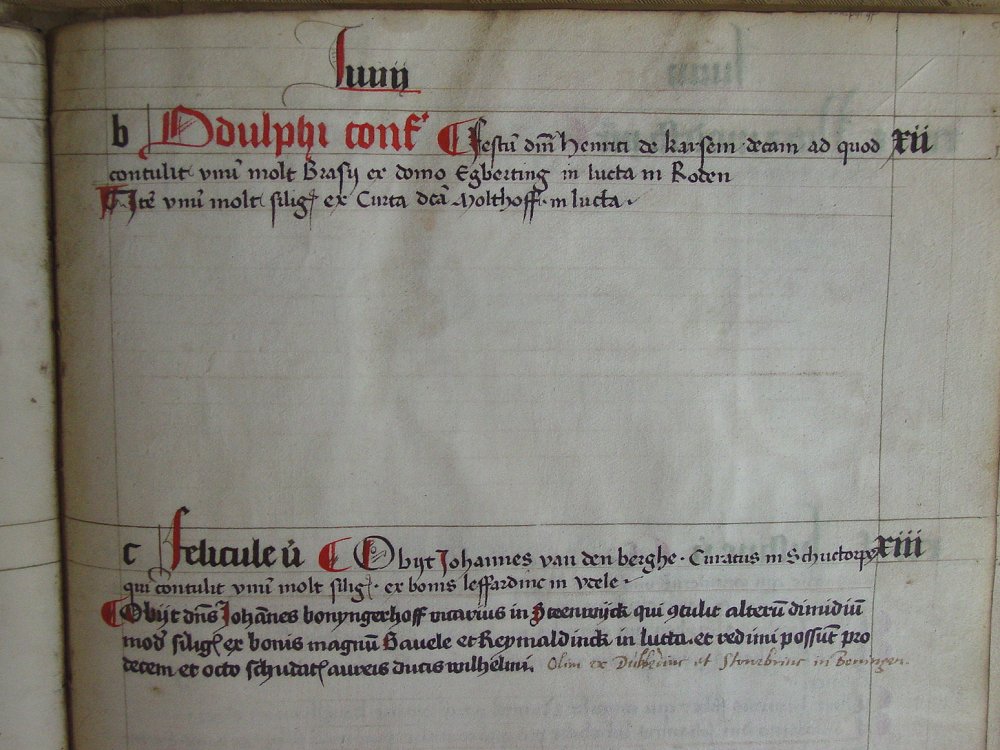 Iunij
b Odulphi conf' Festū dn̄i Henrici de karsem decani ad quod xii
contulit vnū molt Brasij ex domo Egberting in lucta in Roden
Itē vnū molt silig ex Curta dc̄ā Molthoff in lucta
c Felicule v̄ Obijt Johannes van den berghe Curatus in Schuttorpp xiii
qui contulit vnū molt silig ex bonis leffardinc in vcele
Obijt dn̄s Johānes bonyngerhoff vicarius in Steenwijck qui ꝯtulit alterū dimidiū
mod silig ex bonis magnū Bauele et Reymaldinck in lucta et redimi possūt pro
decem et octo schudat aureis ducis wilhelmi. Olim ex Dubbedinc et Stouebrinc in Boningen.